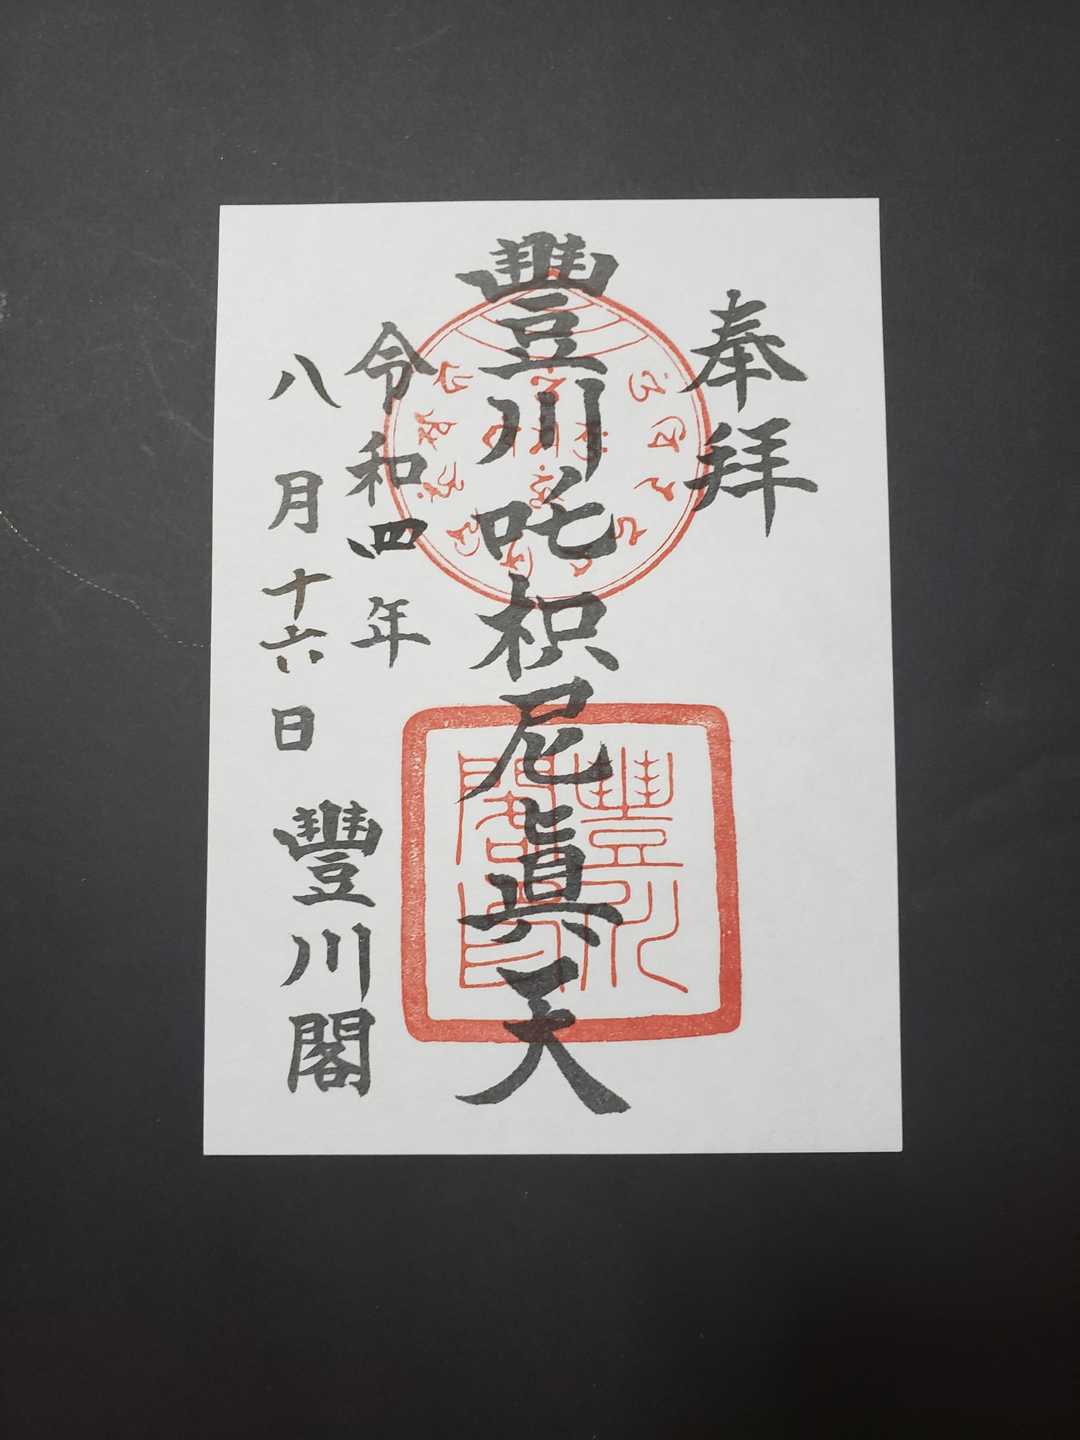 奉拜
豐川吒枳尼眞天
令和四年
八月十六日
豐川閣
豐川閣印